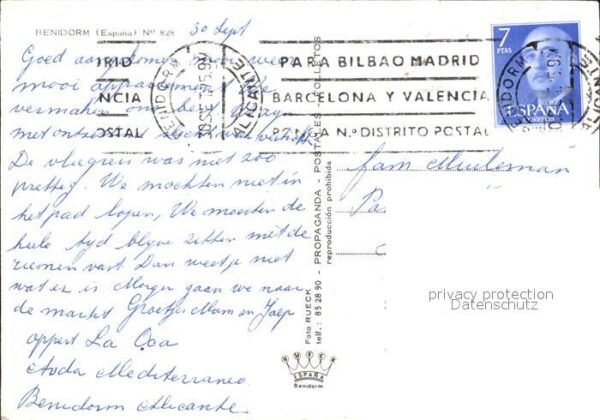 BENIDORM (España) Nº 828
30 Sept
Goed aangekomen mooi weer
mooi appartement
vermaken ons best
met ontzettend
De vliegreis was niet zoo
prettig. We mochten niet in
het pad lopen, We moesten de
hele tyd blyven zitten met de
riemen vast Dan weet je niet
wat er is Morgen gaan we naar
de markt Groetjes Mam en Jaap
appart La Coa
Avda Mediterraneo
Benidorm Alicante
RID
NCIA
OSTAL
BENIDORM
30 SET
ALICANTE
PARA BILBAO MADRID
BARCELONA Y VALENCIA
PONGA Nº DISTRITO POSTAL
7
PTAS
ESPAÑA
CORREOS
BENIDORM
ALICANTE
fam Meuleman
Pa
PROPAGANDA - POSTALES - FOLLETOS
reproducción prohibida
Foto RUECK
telf.: 85 28 90
RUECK
ESPAÑA
Benidorm
privacy protection
Datenschutz